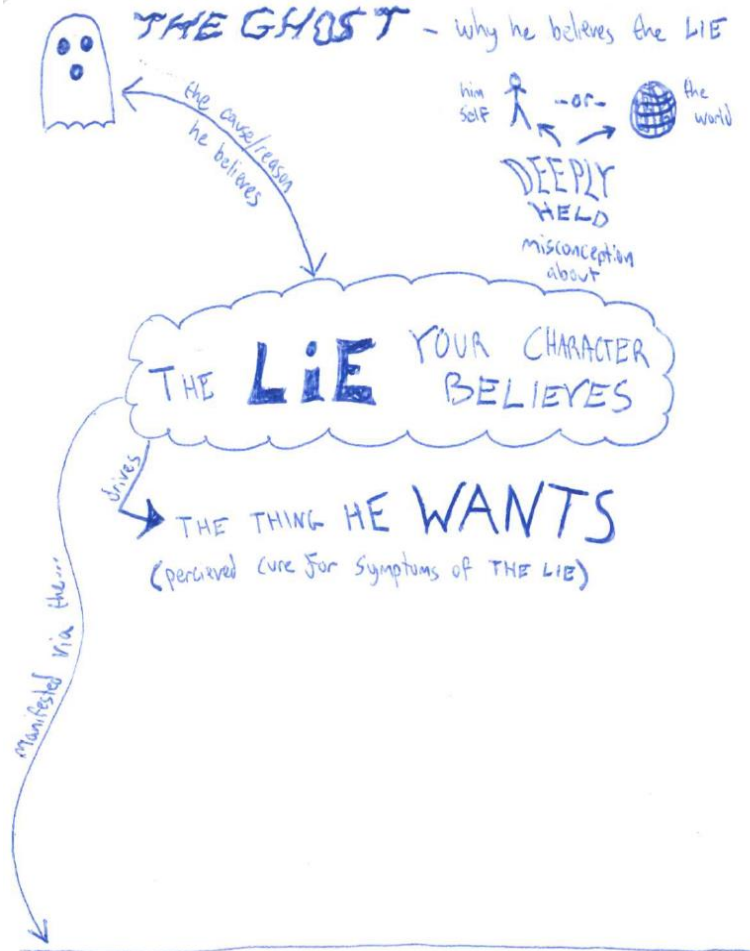 THE GHOST - why he believes the LIE
him self -or- the world
the cause/reason
he believes
DEEPLY
HELD
misconception
about
THE LiE YOUR CHARACTER
BELIEVES
drives
THE THING HE WANTS
(percieved cure for symptoms of THE LIE)
Manifested via the...